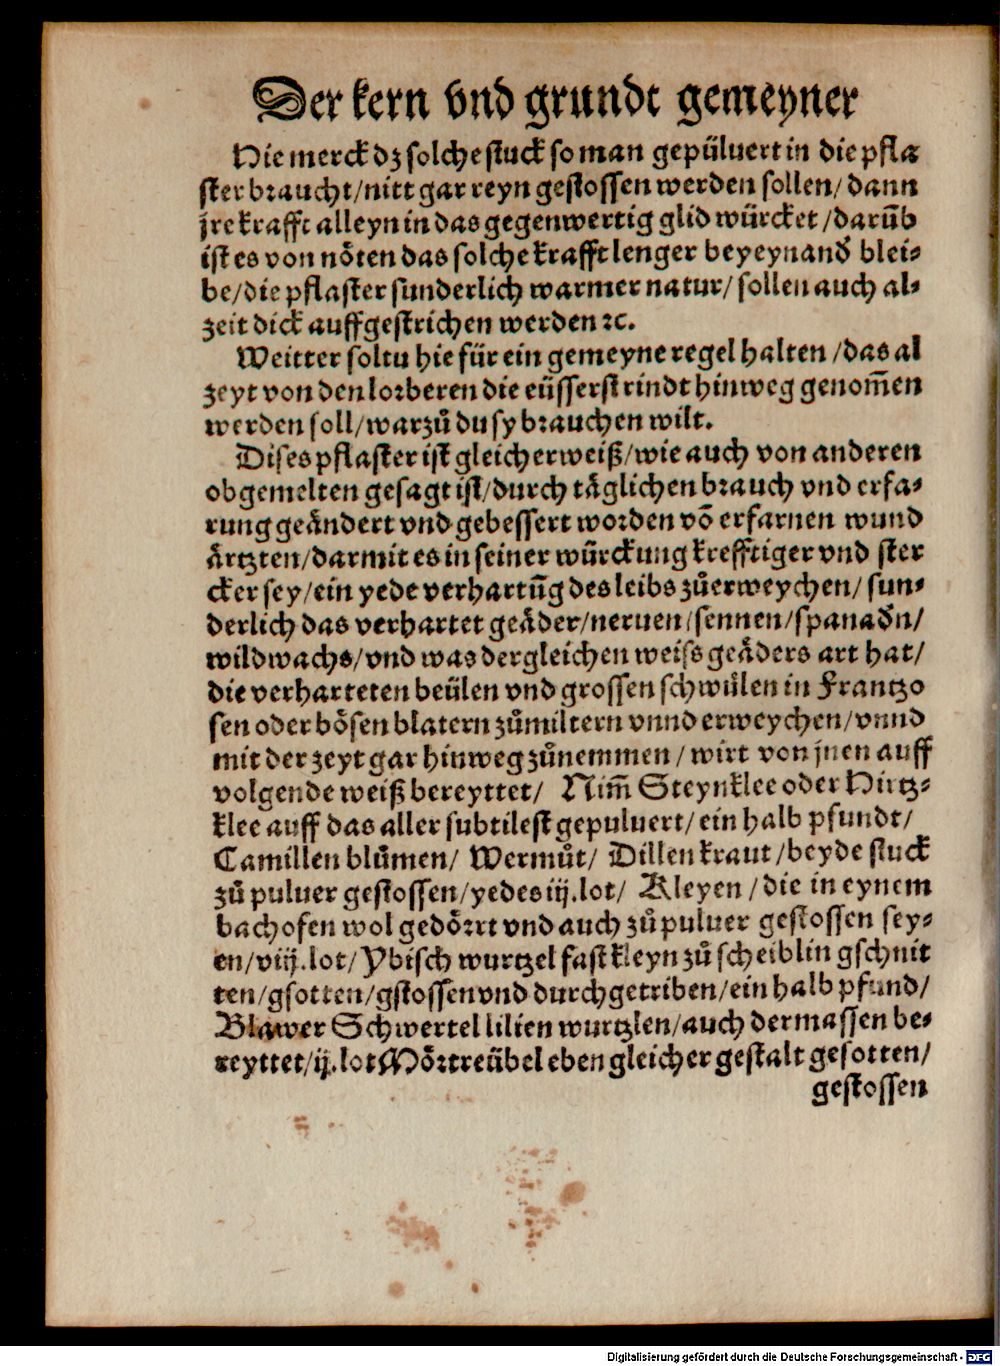 Der kern vnd grundt gemeyner
Hie merck dz solche stuck so man gepüluert in die pfla
ster braucht/nitt gar reyn gestossen werden sollen/dann
jre krafft alleyn in das gegenwertig glid würcket/darūb
ist es von nöten das solche krafft lenger beyeynand̛ blei⸗
be/die pflaster sunderlich warmer natur/sollen auch al⸗
zeit dick auffgestrichen werden ꝛc.
Weitter soltu hie für ein gemeyne regel halten/das al
zeyt von den lorberen die eüsserst rindt hinweg genom̄en
werden soll/warzů du sy brauchen wilt.
Dises pflaster ist gleicherweiß/wie auch von anderen
obgemelten gesagt ist/durch täglichen brauch vnd erfa⸗
rung geändert vnd gebessert worden vō erfarnen wund
ärtzten/darmit es in seiner würckung krefftiger vnd ster
cker sey/ein yede verhartūg des leibs zůerweychen/sun⸗
derlich das verhartet geäder/neruen/sennen/spanad̛n/
wildwachs/vnd was dergleichen weiss geäders art hat/
die verharteten beülen vnd grossen schwülen in Frantzo
sen oder bösen blatern zůmiltern vnnd erweychen/vnnd
mit der zeyt gar hinweg zůnemmen/wirt von jnen auff
volgende weiß bereyttet/ Nim̄ Steynklee oder Hirtz⸗
klee auff das aller subtilest gepuluert/ein halb pfundt/
Camillen blůmen/ Wermůt/ Dillen kraut/beyde stuck
zů puluer gestossen/yedes iij.lot/ Kleyen/die in eynem
bachofen wol gedörrt vnd auch zů puluer gestossen sey⸗
en/viij.lot/Ybisch wurtzel fast kleyn zů scheiblin gschnit
ten/gsotten/gstossen vnd durchgetriben/ein halb pfund/
Blawer Schwertel lilien wurtzlen/auch dermassen be⸗
reyttet/ij.lot Mörtreübel eben gleicher gestalt gesotten/
gestossen
Digitalisierung gefördert durch die Deutsche Forschungsgemeinschaft - DFG